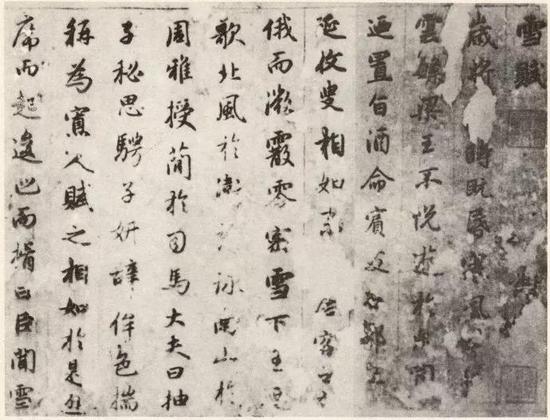 雪賦
歲將時既昏寒風
雲繁梁王不悅遊於兔園
迺置旨酒命賓友召鄒生
延枚叟相如末居客之
俄而微霰零密雪下王迺
歌北風於衛詩詠南山於
周雅授簡於司馬大夫曰抽
子秘思騁子妍辭侔色揣
稱為寡人賦之相如於是避
席而起逡巡而揖曰臣聞雪